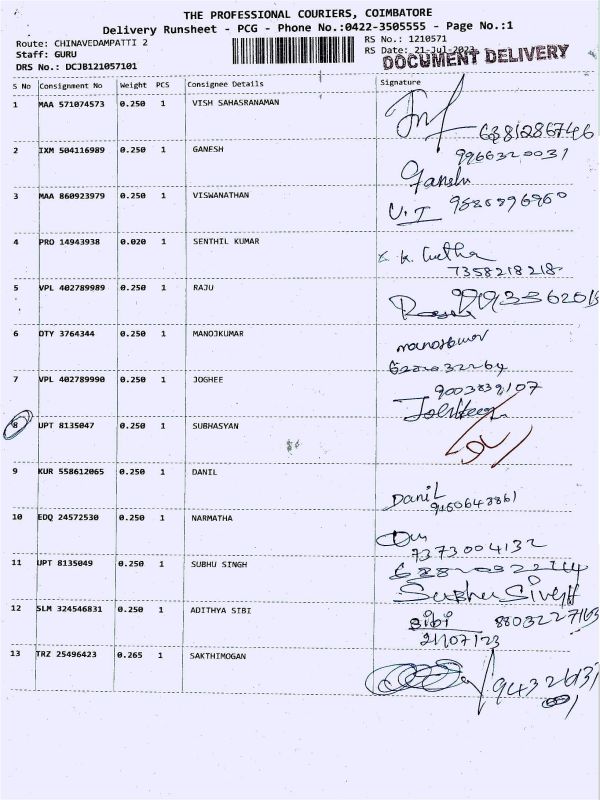 THE PROFESSIONAL COURIERS, COIMBATORE
Delivery Runsheet - PCG - Phone No.:0422-3505555 - Page No.:1
Route: CHINAVEDAMPATTI 2
RS No.: 1210571
Staff: GURU
RS Date: 21-Jul-2023
DRS No.: DCJB121057101
DOCUMENT DELIVERY
S No Consignment No Weight PCS Consignee Details Signature
1 MAA 571074573 0.250 1 VISH SAHASRANAMAN
6381286746
2 IXM 504116989 0.250 1 GANESH
9966320031
Ganesh
3 MAA 860923979 0.250 1 VISWANATHAN
V.T
4 PRO 14943938 0.020 1 SENTHIL KUMAR
7358218218
5 VPL 402789989 0.250 1 RAJU
6 DTY 3764344 0.250 1 MANOJKUMAR
manojkumar
7 VPL 402789990 0.250 1 JOGHEE
9003839107
8 UPT 8135047 0.250 1 SUBHASYAN
9 KUR 558612065 0.250 1 DANIL
Danil
10 EDQ 24572530 0.250 1 NARMATHA
7373004132
11 UPT 8135049 0.250 1 SUBHU SINGH
Subhu Singh
12 SLM 324546831 0.250 1 ADITHYA SIBI
Sibi 8803227163
21/07/23
13 TRZ 25496423 0.265 1 SAKTHIMOGAN